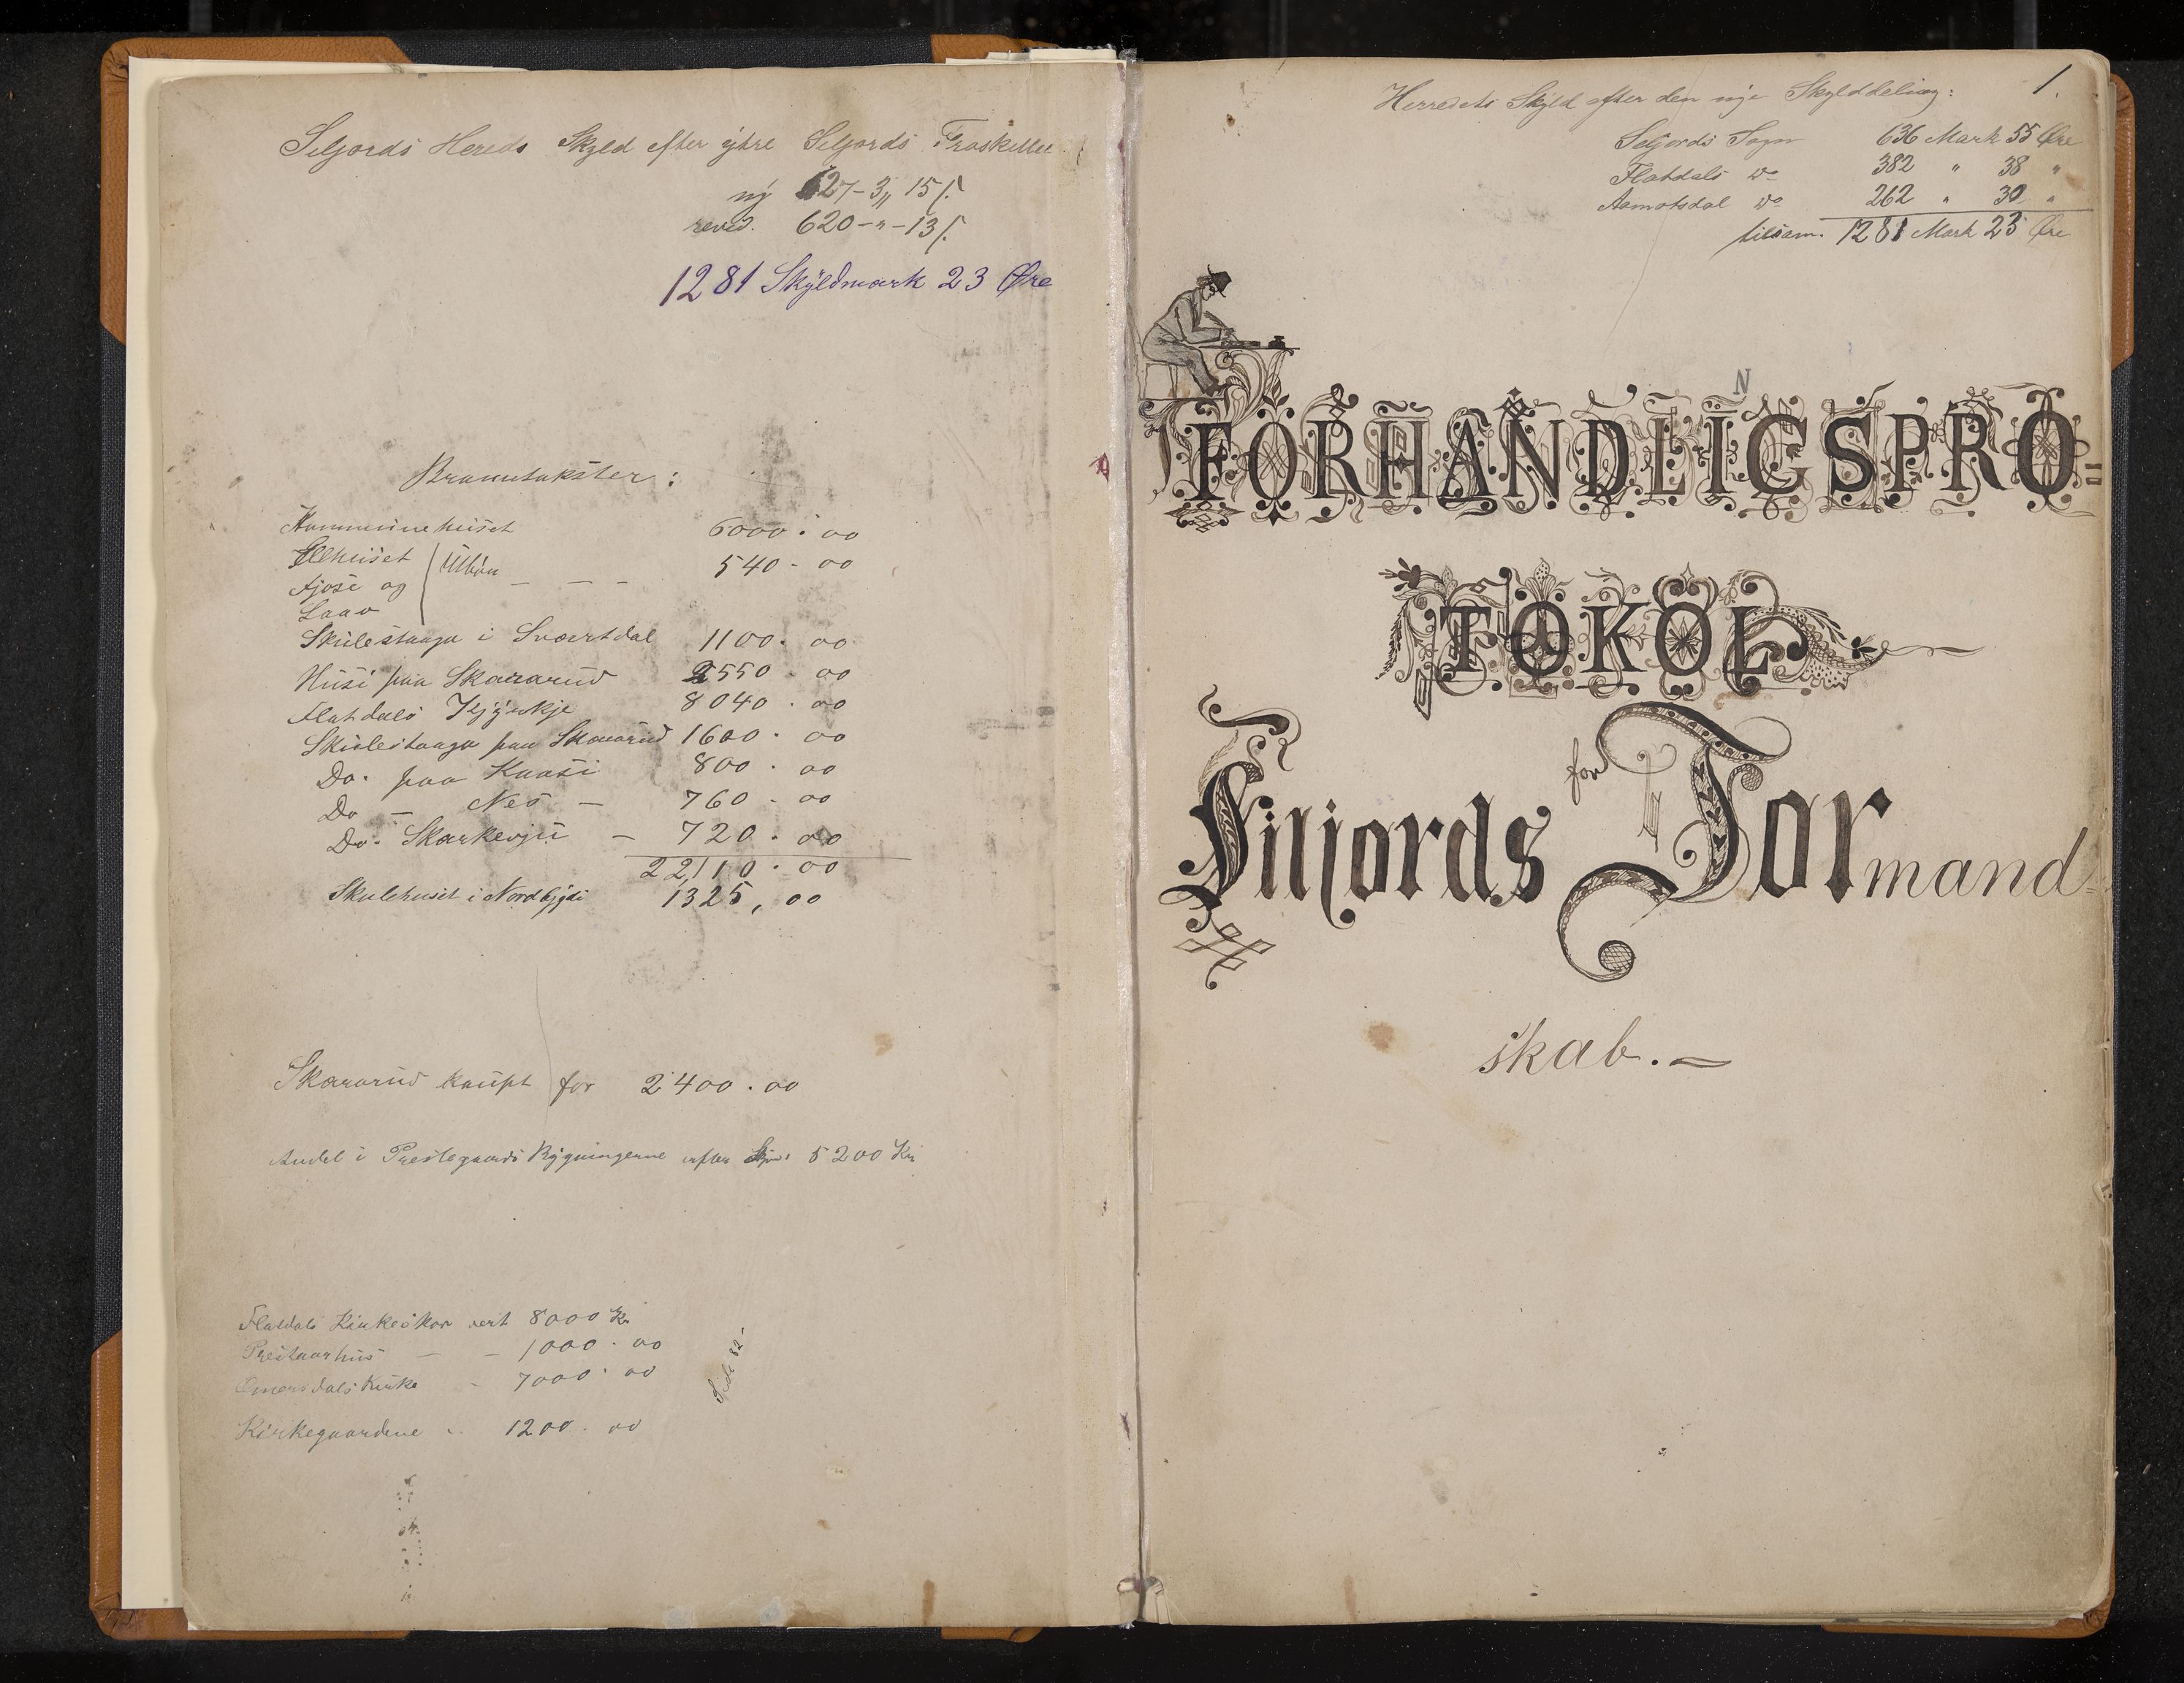 Seljords Hereds Skyld efter ytre Seljords Fraskillelse
ny 627 - 3 „ 15 ſ.
revid. 620 - „ - 13 ſ.
1281 Skyldmark 23 Øre
Branntakster:
Kommunehuset 6000 . 00
Ilhuset
Fjose og
Laav
Utbøn — — — 540 - 00
Skulestaaga i Svartdal 1100 . 00
Husi paa Skararud 2550 . 00
Flatdals Kjyrkje 8040 . 00
Skulestaaga paa Skararud 1600 . 00
Do. paa Kaasi 800 . 00
Do — Nes — 760 . 00
Do. Skarkevju — 720 . 00
22110 . 00
Skulehuset i Nordbygdi 1325, 00
Skararud kaupt for 2400 . 00
Andel i Prestegaards Bygningerne efter 5200 Kr
Flatdals Kirke vert 8000 Kr
Prestaarhus — — 1000 . 00
Omotsdals Kirke - 7000 . 00
Kirkegaardene „ 1200 . 00
Side 82
1.
Herredets Skyld efter den nye Skylddeling:
Seljords Sogn 636 Mark 55 Øre
Flatdals do 382 " 38 "
Aamotsdal do 262 " 30 "
tilsam. 1281 Mark 23 Øre
N
FORHANDLIGSPRO=
TOKOL
for
Siljords Formand=
skab. —